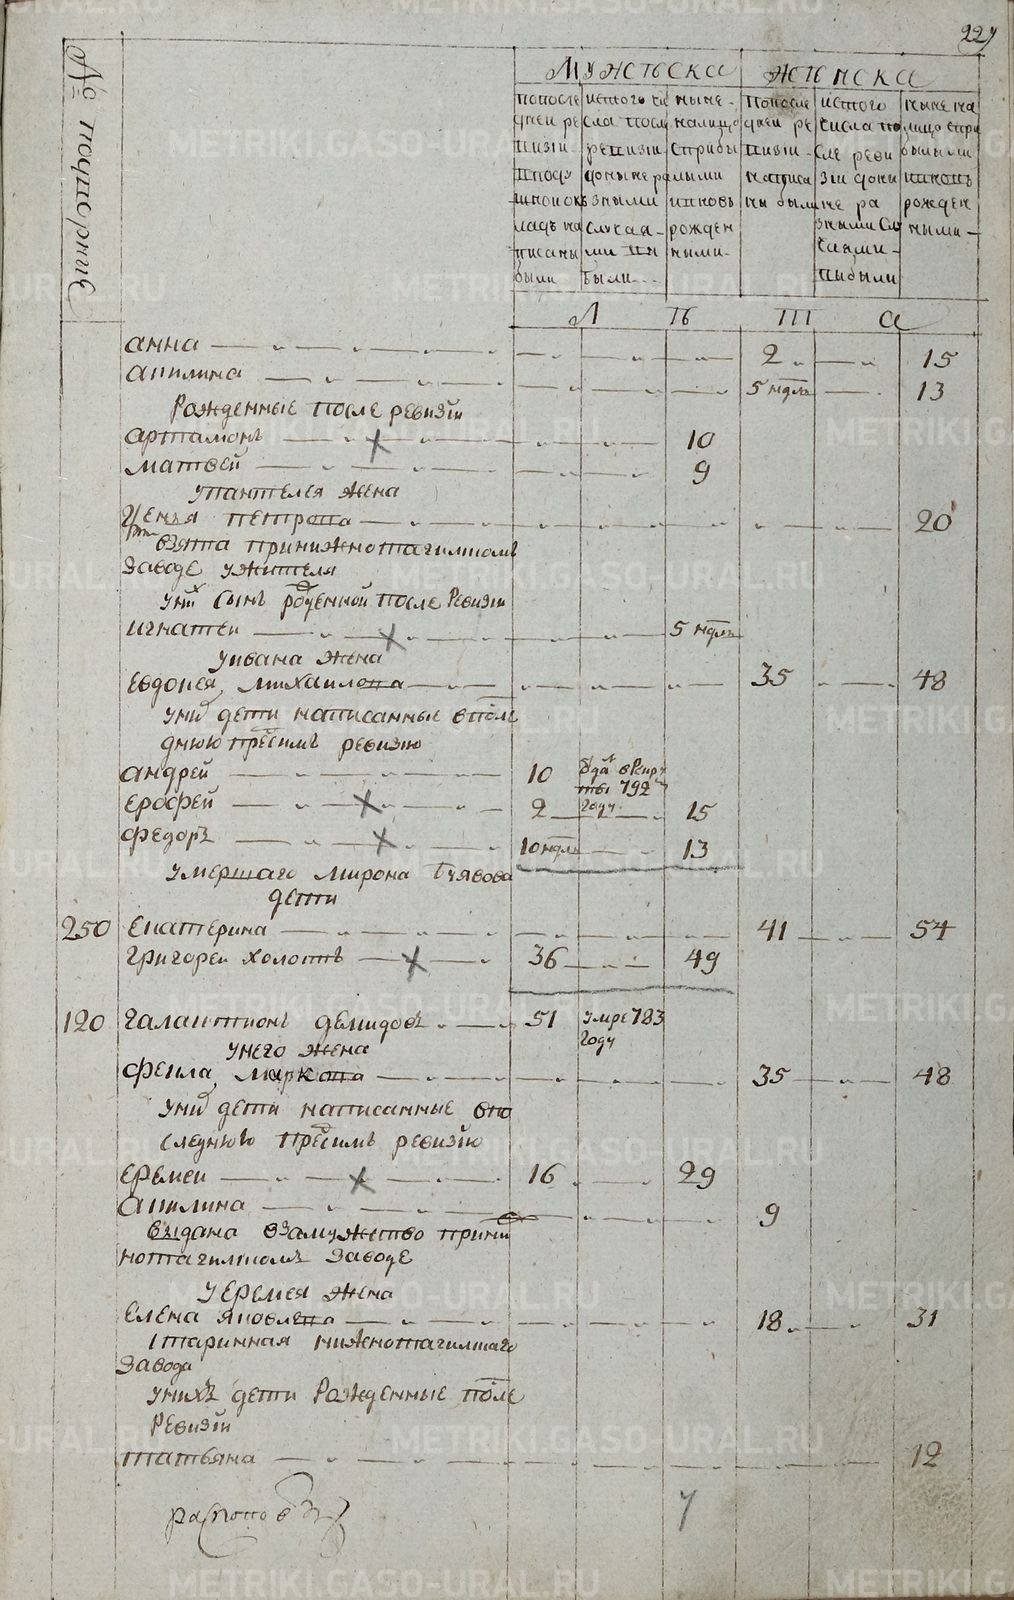 227
№ подворние
Мужеска
Женска
попосле
дней ре
визии
вподу
шной ок
ладъ на
писаны
были
истого чи
сла после
ревизии
доныне ра
зными
случая
ми вы
были
ныне
налицо
сприбы
лыми
ивновь
рожден
ными
попосле
дней ре
визии
написа
ны были
истого
числа по
сле реви
зии доны
не ра
зными слу
чаями
выбыли
ныне на
лицо спри
былыми
ивновь
рожден
ными
Л В Т А
анна 2 15
акилина 5 ндль 13
Рожденные после ревизии
артамонъ 10
матвей 9
упантелея жена
петрова 20
взята принижнотагилском
заводе ужителя
уних сынъ рожденной после Ревизии
игнатей 5 ндль
уивана жена
Евдокея михаилова 35 48
уних дети написанные впосле
днюю пред сим ревизию
андрей 10 отдан в Рекру
ты 792
году
ерофей 2 15
федоръ 10 ндль 13
умершаго мирона
дети
250 Екатерина 41 54
григореи холостъ 36 49
120 галактионъ демидовъ 51 умре 783
году
унего жена
фекла маркова 35 48
уних дети написанные впо
следнюю пред симъ ревизию
еремеи 16 29
акилина 9
выдана взамужство прини
жнотагилском заводе
уеремея жена
елена яковлева 18 31
старинная нижнотагилскаго
завода
унихъ дети Рожденные после
Ревизии
татьяна 12
7
METRIKI.GASO-URAL.RU